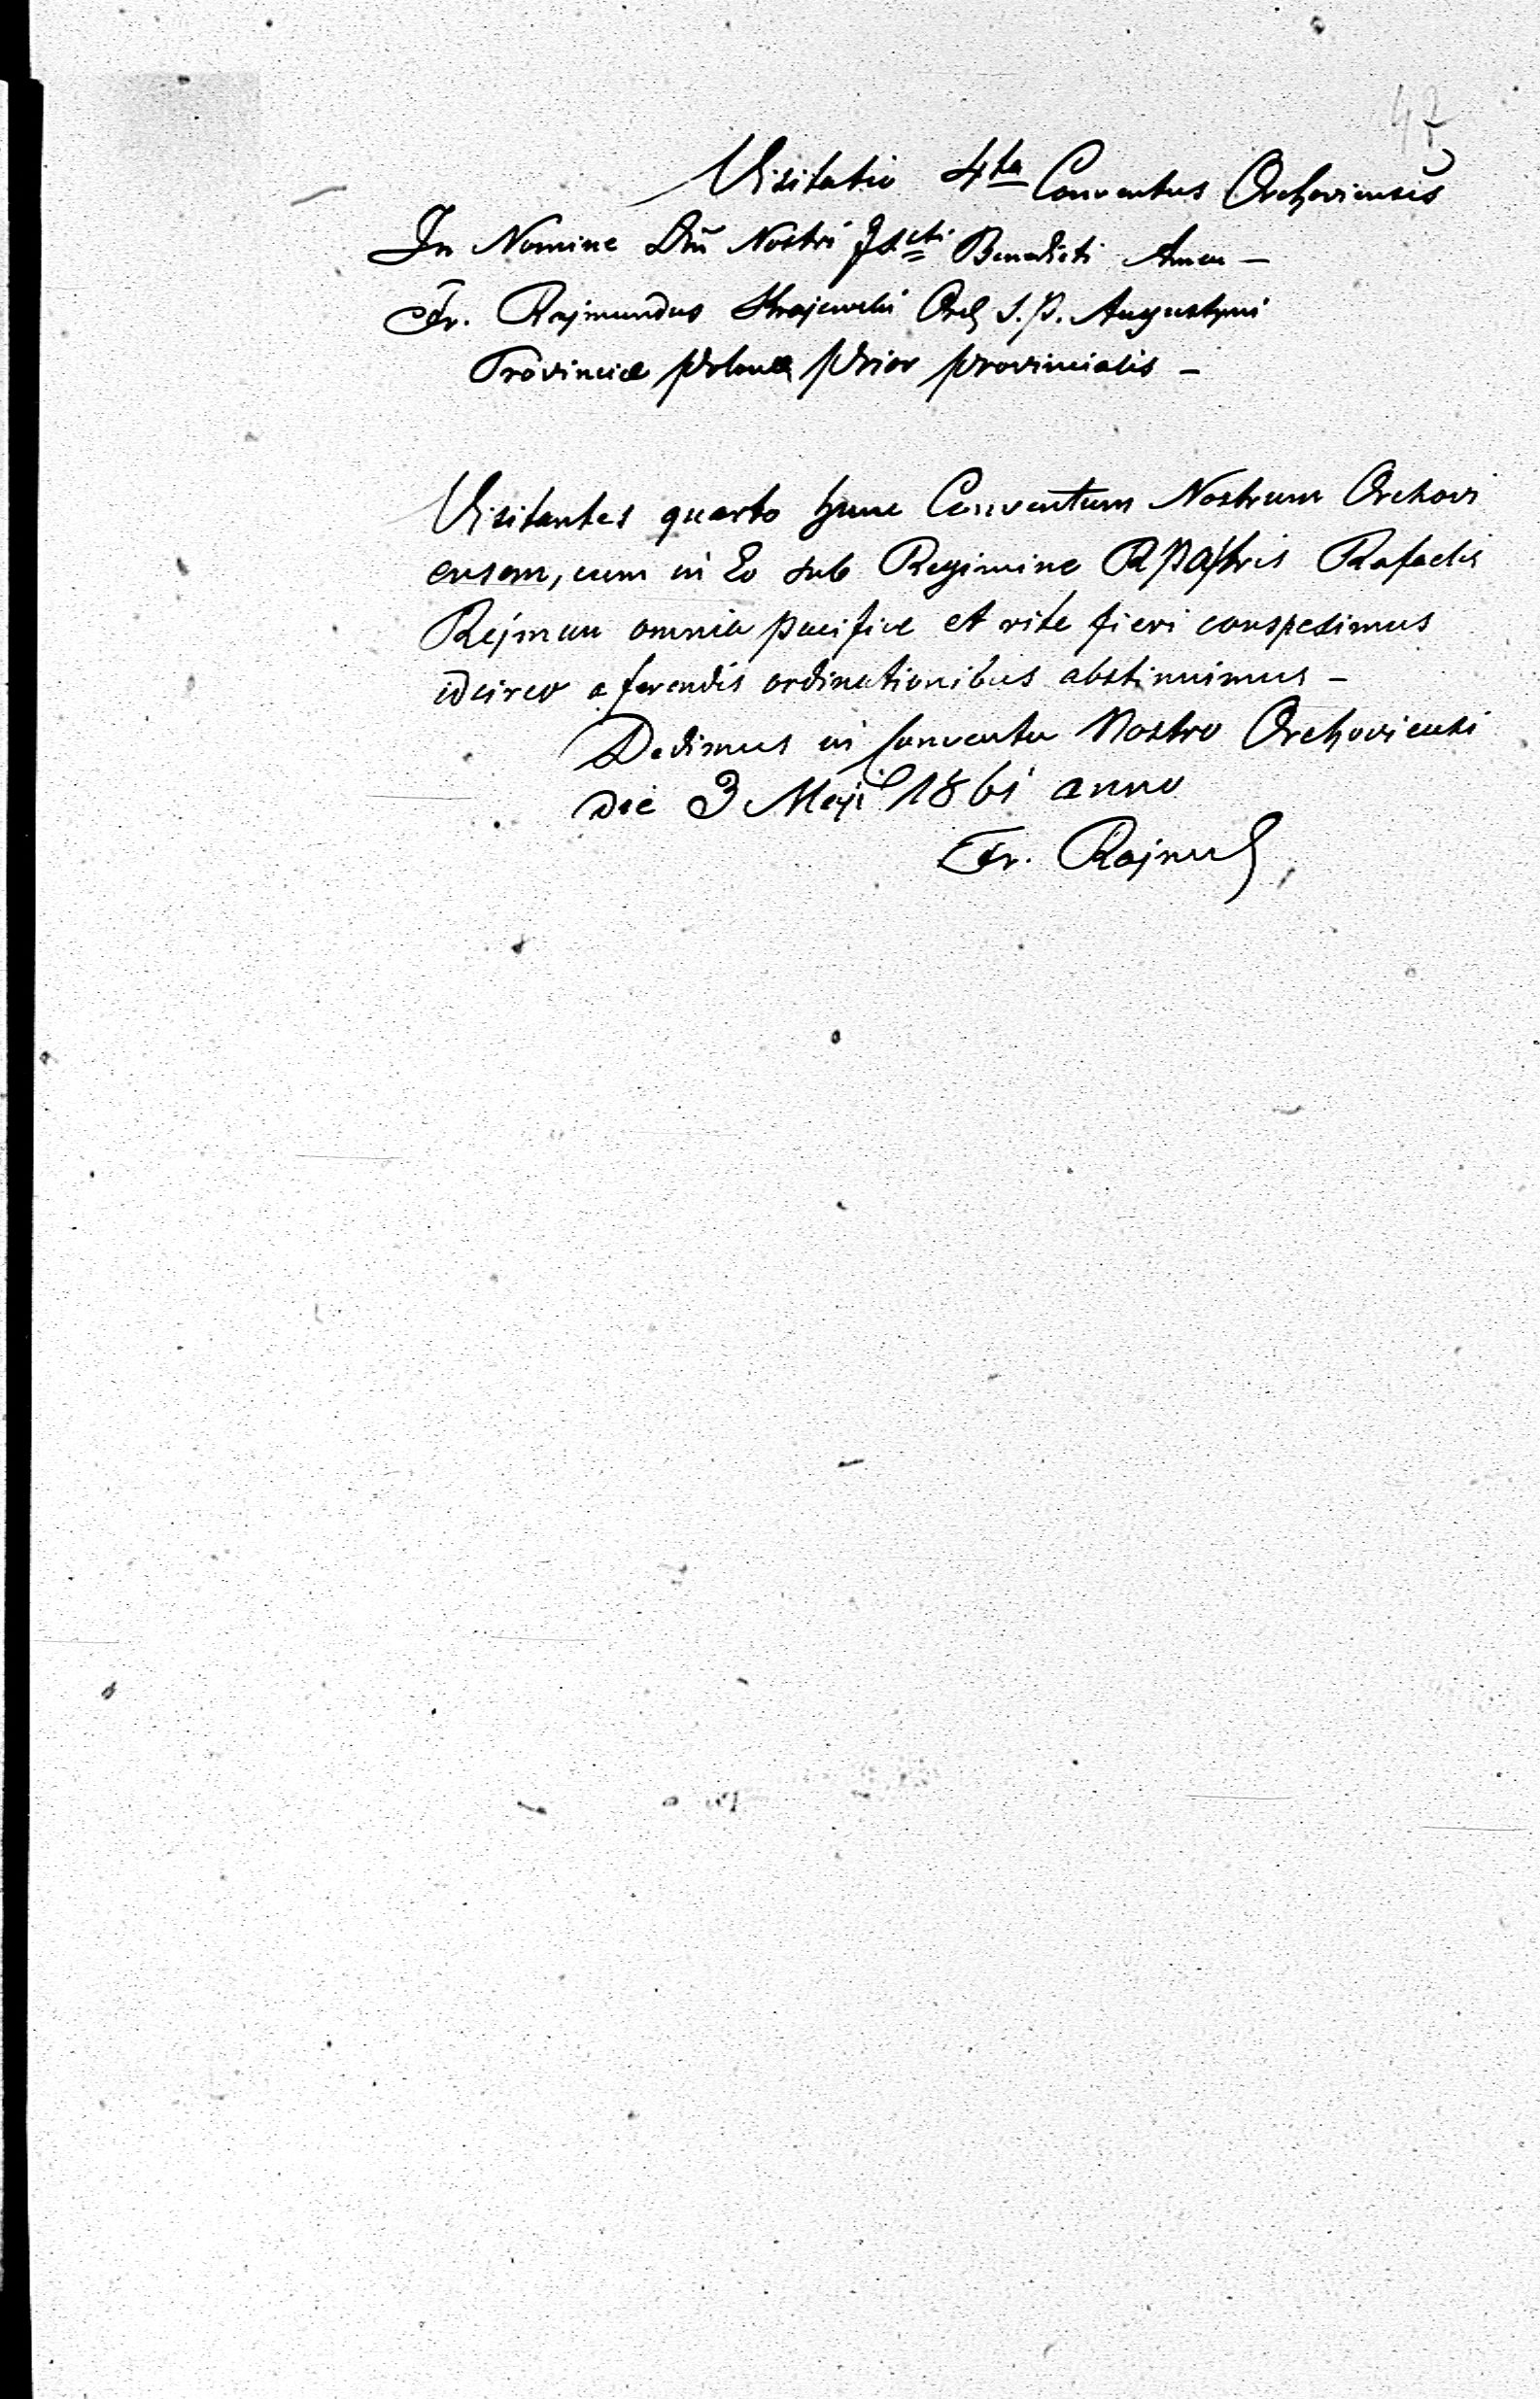 47
Visitatio 4ta Conventus Orchoviensis
In Nomine Dñi Nostri Benedicti Amen –
Fr. Rajmundus Krajewski Ord S. P. Augustyni
Provinciæ Polonæ Prior Provincialis –
Visitantes quarto hunc Conventum Nostrum Orchovi
ensem, cum in Eo sub Regimine R Patris Rafaelis
Rejman omnia pacifice et rite fieri conspeximus
idcirco a ferendis ordinationibus abstinuimus –
Dedimus in Conventu Nostro Orchoviensi
Die 3 Maji 1861 anno
Fr. Rajmund